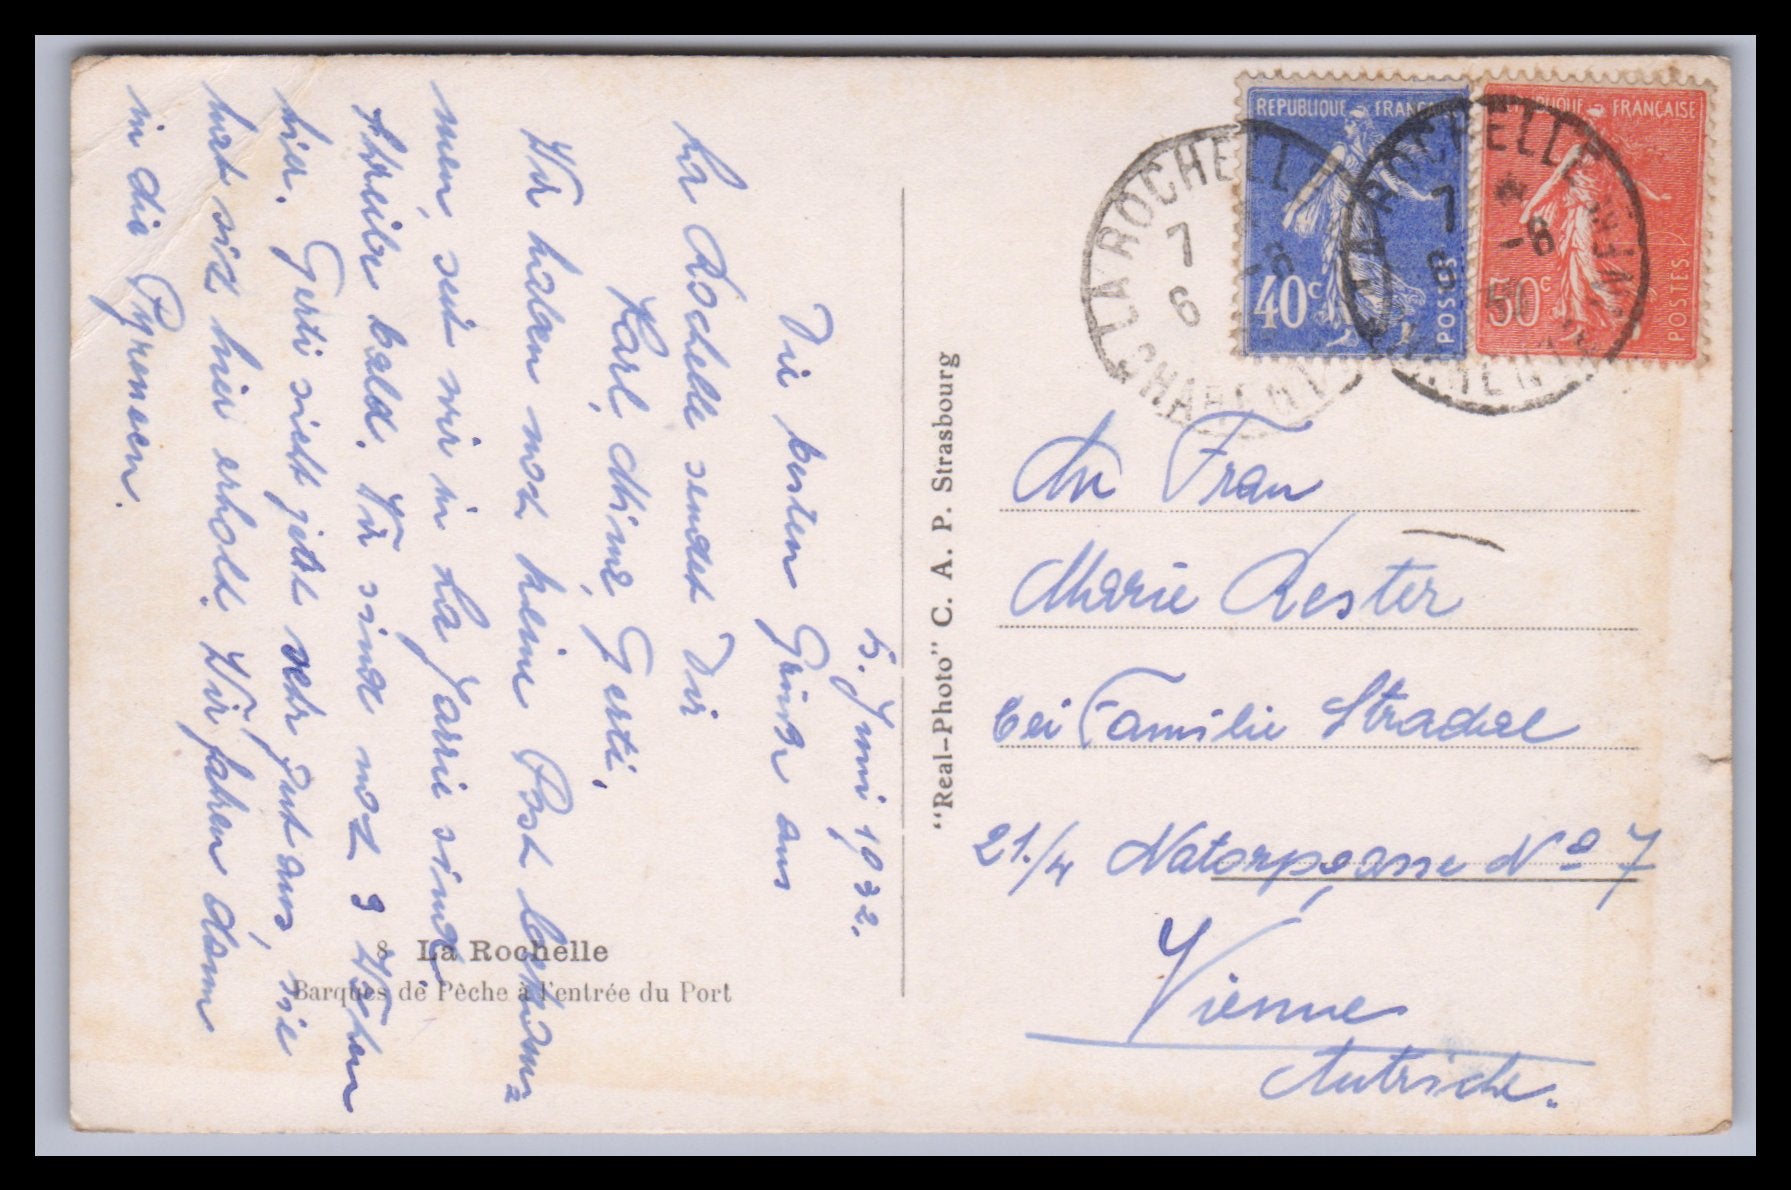 5. Juni 1932.
Die besten Grüsse aus
La Rochelle sendet Dir
Karl, Gerti.
Wir haben noch keine Post bekom=
men, seit wir in La Jarrie sind,
schreibe bald. Wir sind noch 3 Wochen
hier. Gerti sieht jetzt sehr gut aus, sie
hat sich hier erholt. Wir fahren dann
in die Pyrenäen.
8 La Rochelle
Barques de Pêche à l'entrée du Port
"Real-Photo" C. A. P. Strasbourg
REPUBLIQUE FRANÇAISE
40c
POSTES
REPUBLIQUE FRANÇAISE
50c
POSTES
LA ROCHELLE
7
6
-6
CHARENTE
LA ROCHELLE
7
-6
6
CHARENTE INFRE
An Frau
Marie Rester
bei Familie Stradal
21./4 Natorpgasse No 7
Vienne
Autriche.